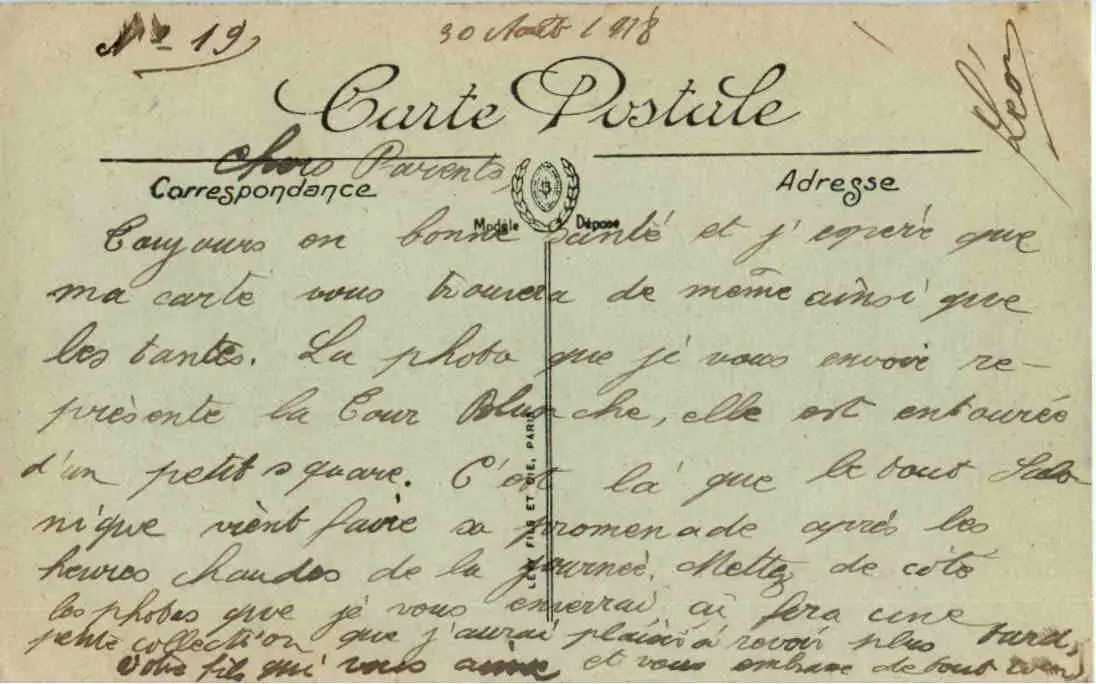 No 19
30 Août 1918
Léon
Carte Postale
Chers Parents,
Correspondance
Adresse
Modèle Déposé
Toujours en bonne santé et j'espère que
ma carte vous trouvera de même ainsi que
les tantes. La photo que je vous envoie re-
présente la Tour Blanche, elle est entourée
d'un petit square. C'est là que le tout Salo
nique vient faire sa promenade après les
heures chaudes de la journée. Mettez de côté
les photos que je vous enverrai ça fera une
petite collection que j'aurai plaisir à revoir plus tard,
Votre fils qui vous aime et vous embrasse de tout coeur
LEVY FILS ET CIE, PARIS